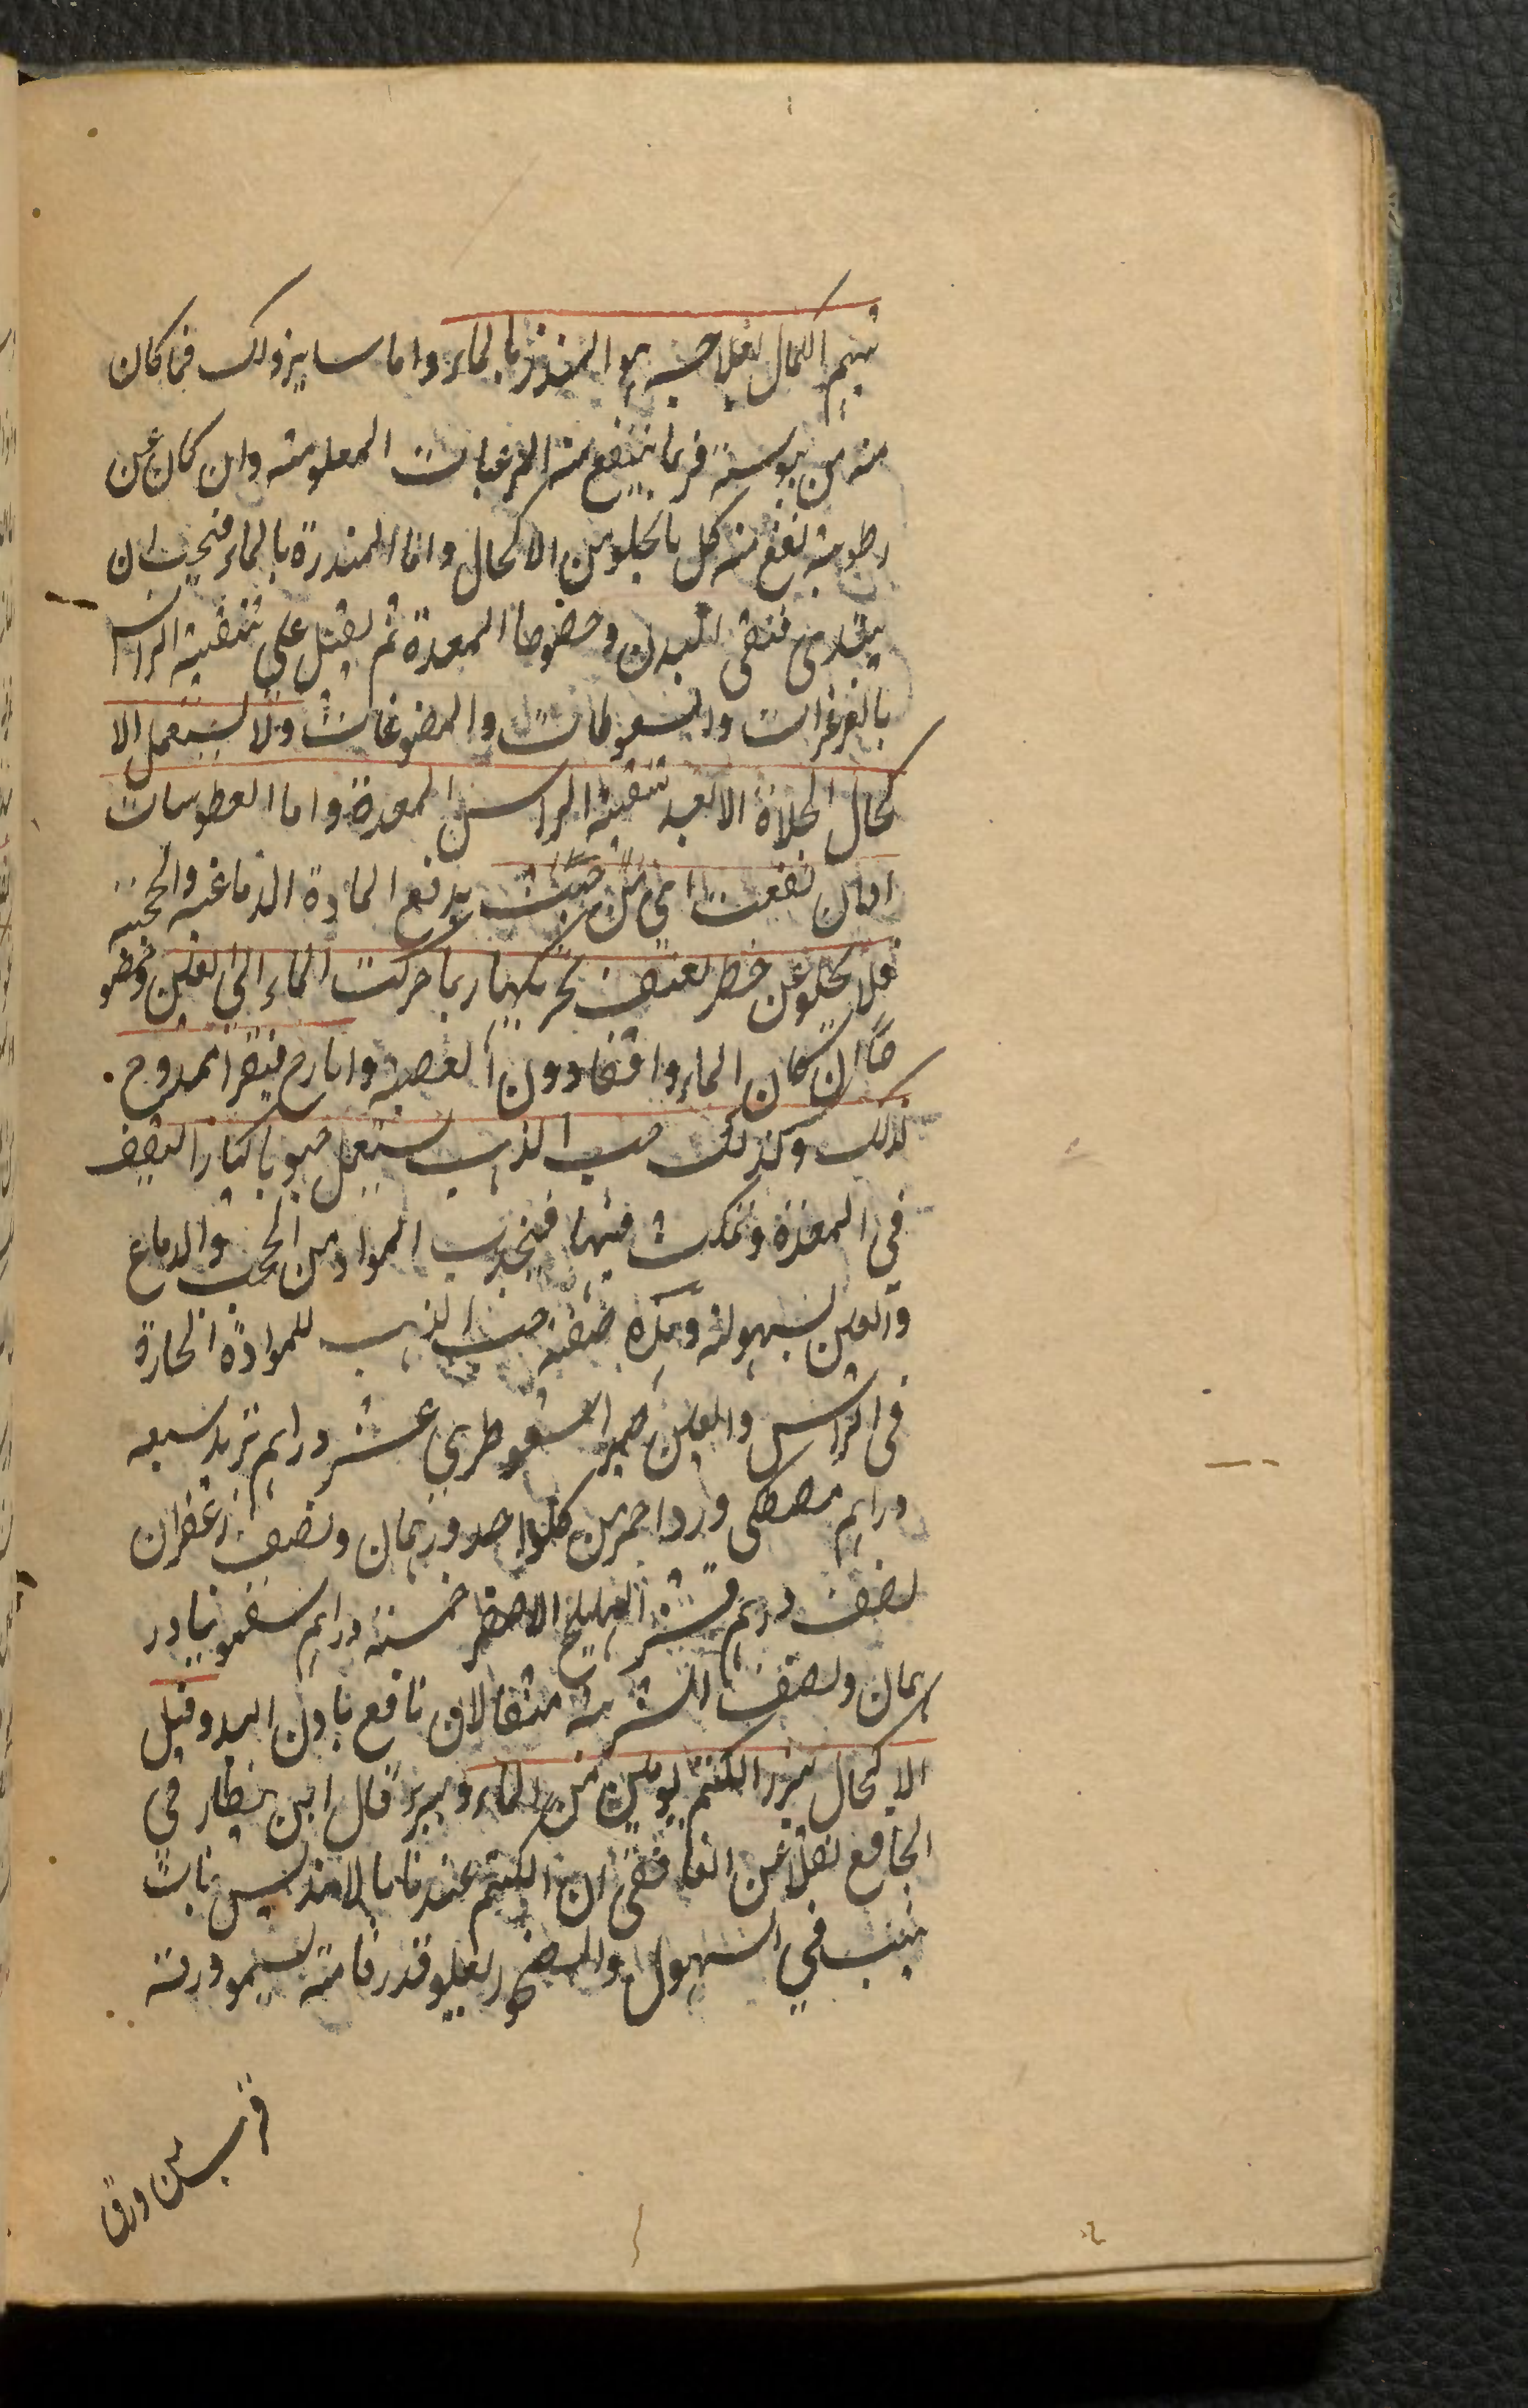 فيهم اكمال لعلاجه هو المنذر بالماء واما ساير ذلك فما كان
منه من يبوسة فربما ينتفع منه المرطبات المعلومة وان كان عن
رطوبة نفع منه كل ما يجلو من الاكحال واما المنذرة بالماء فيجب ان
يبتدى فتنقى البدن وخصوصا المعدة ثم يقبل على تنقية الراس
بالغرغرات والسعوطات والمضوغات ولا يستعمل الا
كحال الجلاة الا بعد تنقية الراس المعدة واما العطوسات
او ان نفعت من حيث يدفع المادة الدماغية والحجبية
فلا يخلو عن خطر لعنف تحريكها ربما حركت الماء الى العين وخصو
صا ان كان الماء واقفا دون العصبة وايارج فيقرا ممدوح
لذلك وكذلك حب الذهب يستعمل حبوبا كبارا ليقف
في المعدة وتمكث فيها فيجذب المواد من الحجب والدماغ
والعين بسهولة وهذه صفة حب الذهب للموادة الحارة
في الراس والعين صبر اسقوطري عشر دراهم تربد سبعه
دراهم مصطكى ورد احمر من كل واحد درهمان ونصف زعفران
نصف درهم قشر الهليلج الاصفر خمسة دراهم سقمونيا در
همان ونصف الشربة مثقالان نافع باذن الله وقيل
الاكحال ببزر الكتم يومين من الماء ويبرء قال ابن بيطار في
الجامع نقلا عن الغافقي ان الكتم عندنا بالاندلس نبات
ينبت في السهول والصخور يعلو قدر قامة يسمو ورقة